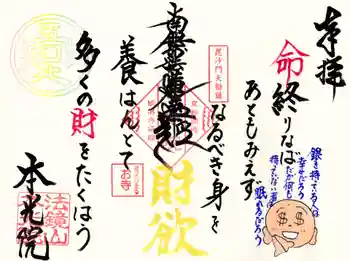 奉拝
命終りなば
あともみえず
なるべき身を
養はんとて
多くの財をたくはう
財欲
本光院
毘沙門天
お寺
法鏡山
銀を持ってる人は
幸せだろう
だが何も
持ってない者は
眠れるだろう